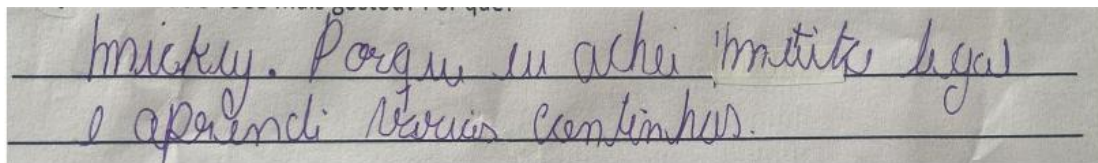 mickey. Porque eu achei muito legal
e aprendi várias continhas.